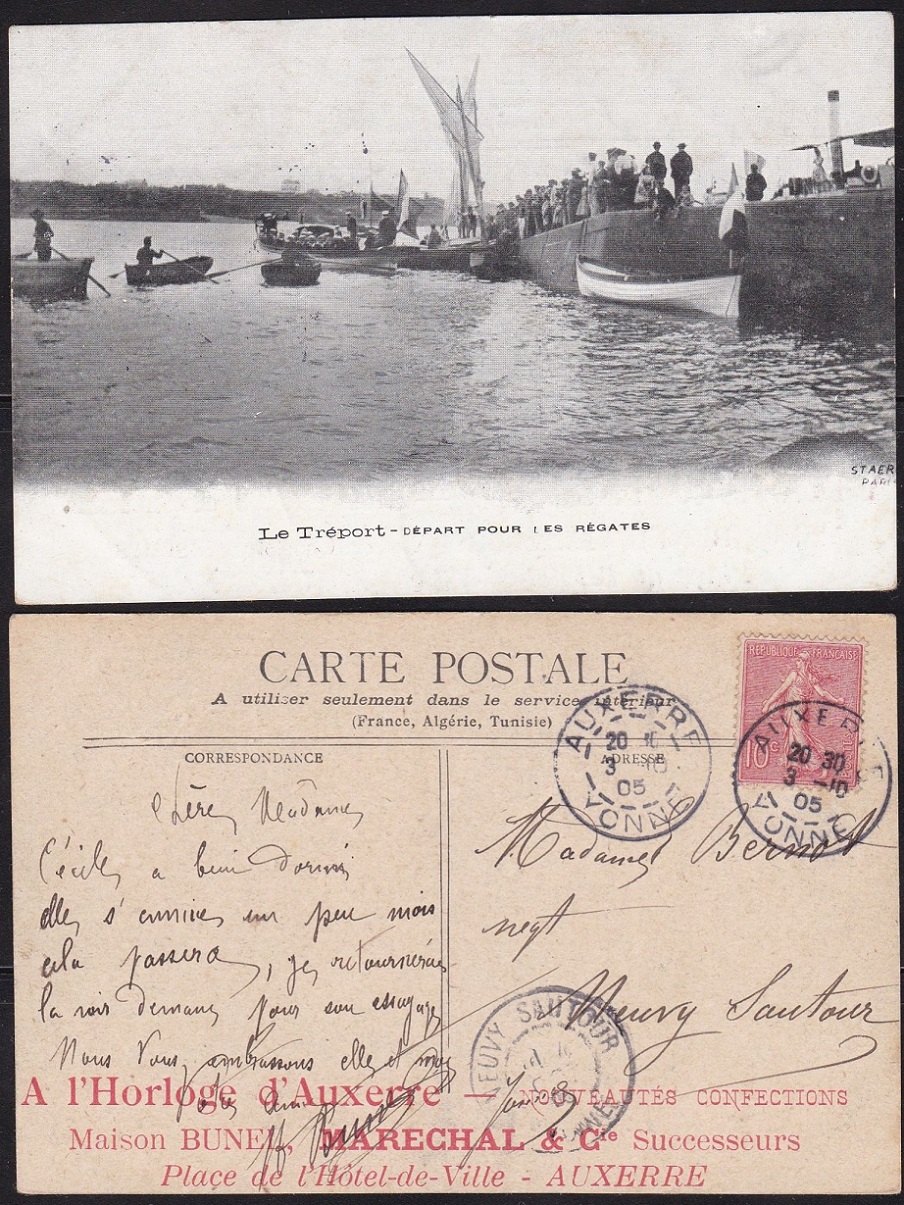 STAER
PARI
Le Tréport - DÉPART POUR LES RÉGATES
CARTE POSTALE
A utiliser seulement dans le service intérieur
(France, Algérie, Tunisie)
CORRESPONDANCE
ADRESSE
REPUBLIQUE FRANÇAISE
10c
AUXERRE
20 30
3 -10
05
YONNE
AUXERRE
20 30
3 -10
05
YONNE
Chère Madame
Cécile a bien dormi
elle s'ennuie un peu mais
cela passera, je retournerai
la voir demain pour son essayage
Nous vous embrassons elle et moi
Madame Bernot
negt
Neuvy Sautour
Yonne
NEUVY SAUTOUR
YONNE
A l'Horloge d'Auxerre — NOUVEAUTÉS CONFECTIONS
Maison BUNEL, MARECHAL & Cie Successeurs
Place de l'Hôtel-de-Ville - AUXERRE